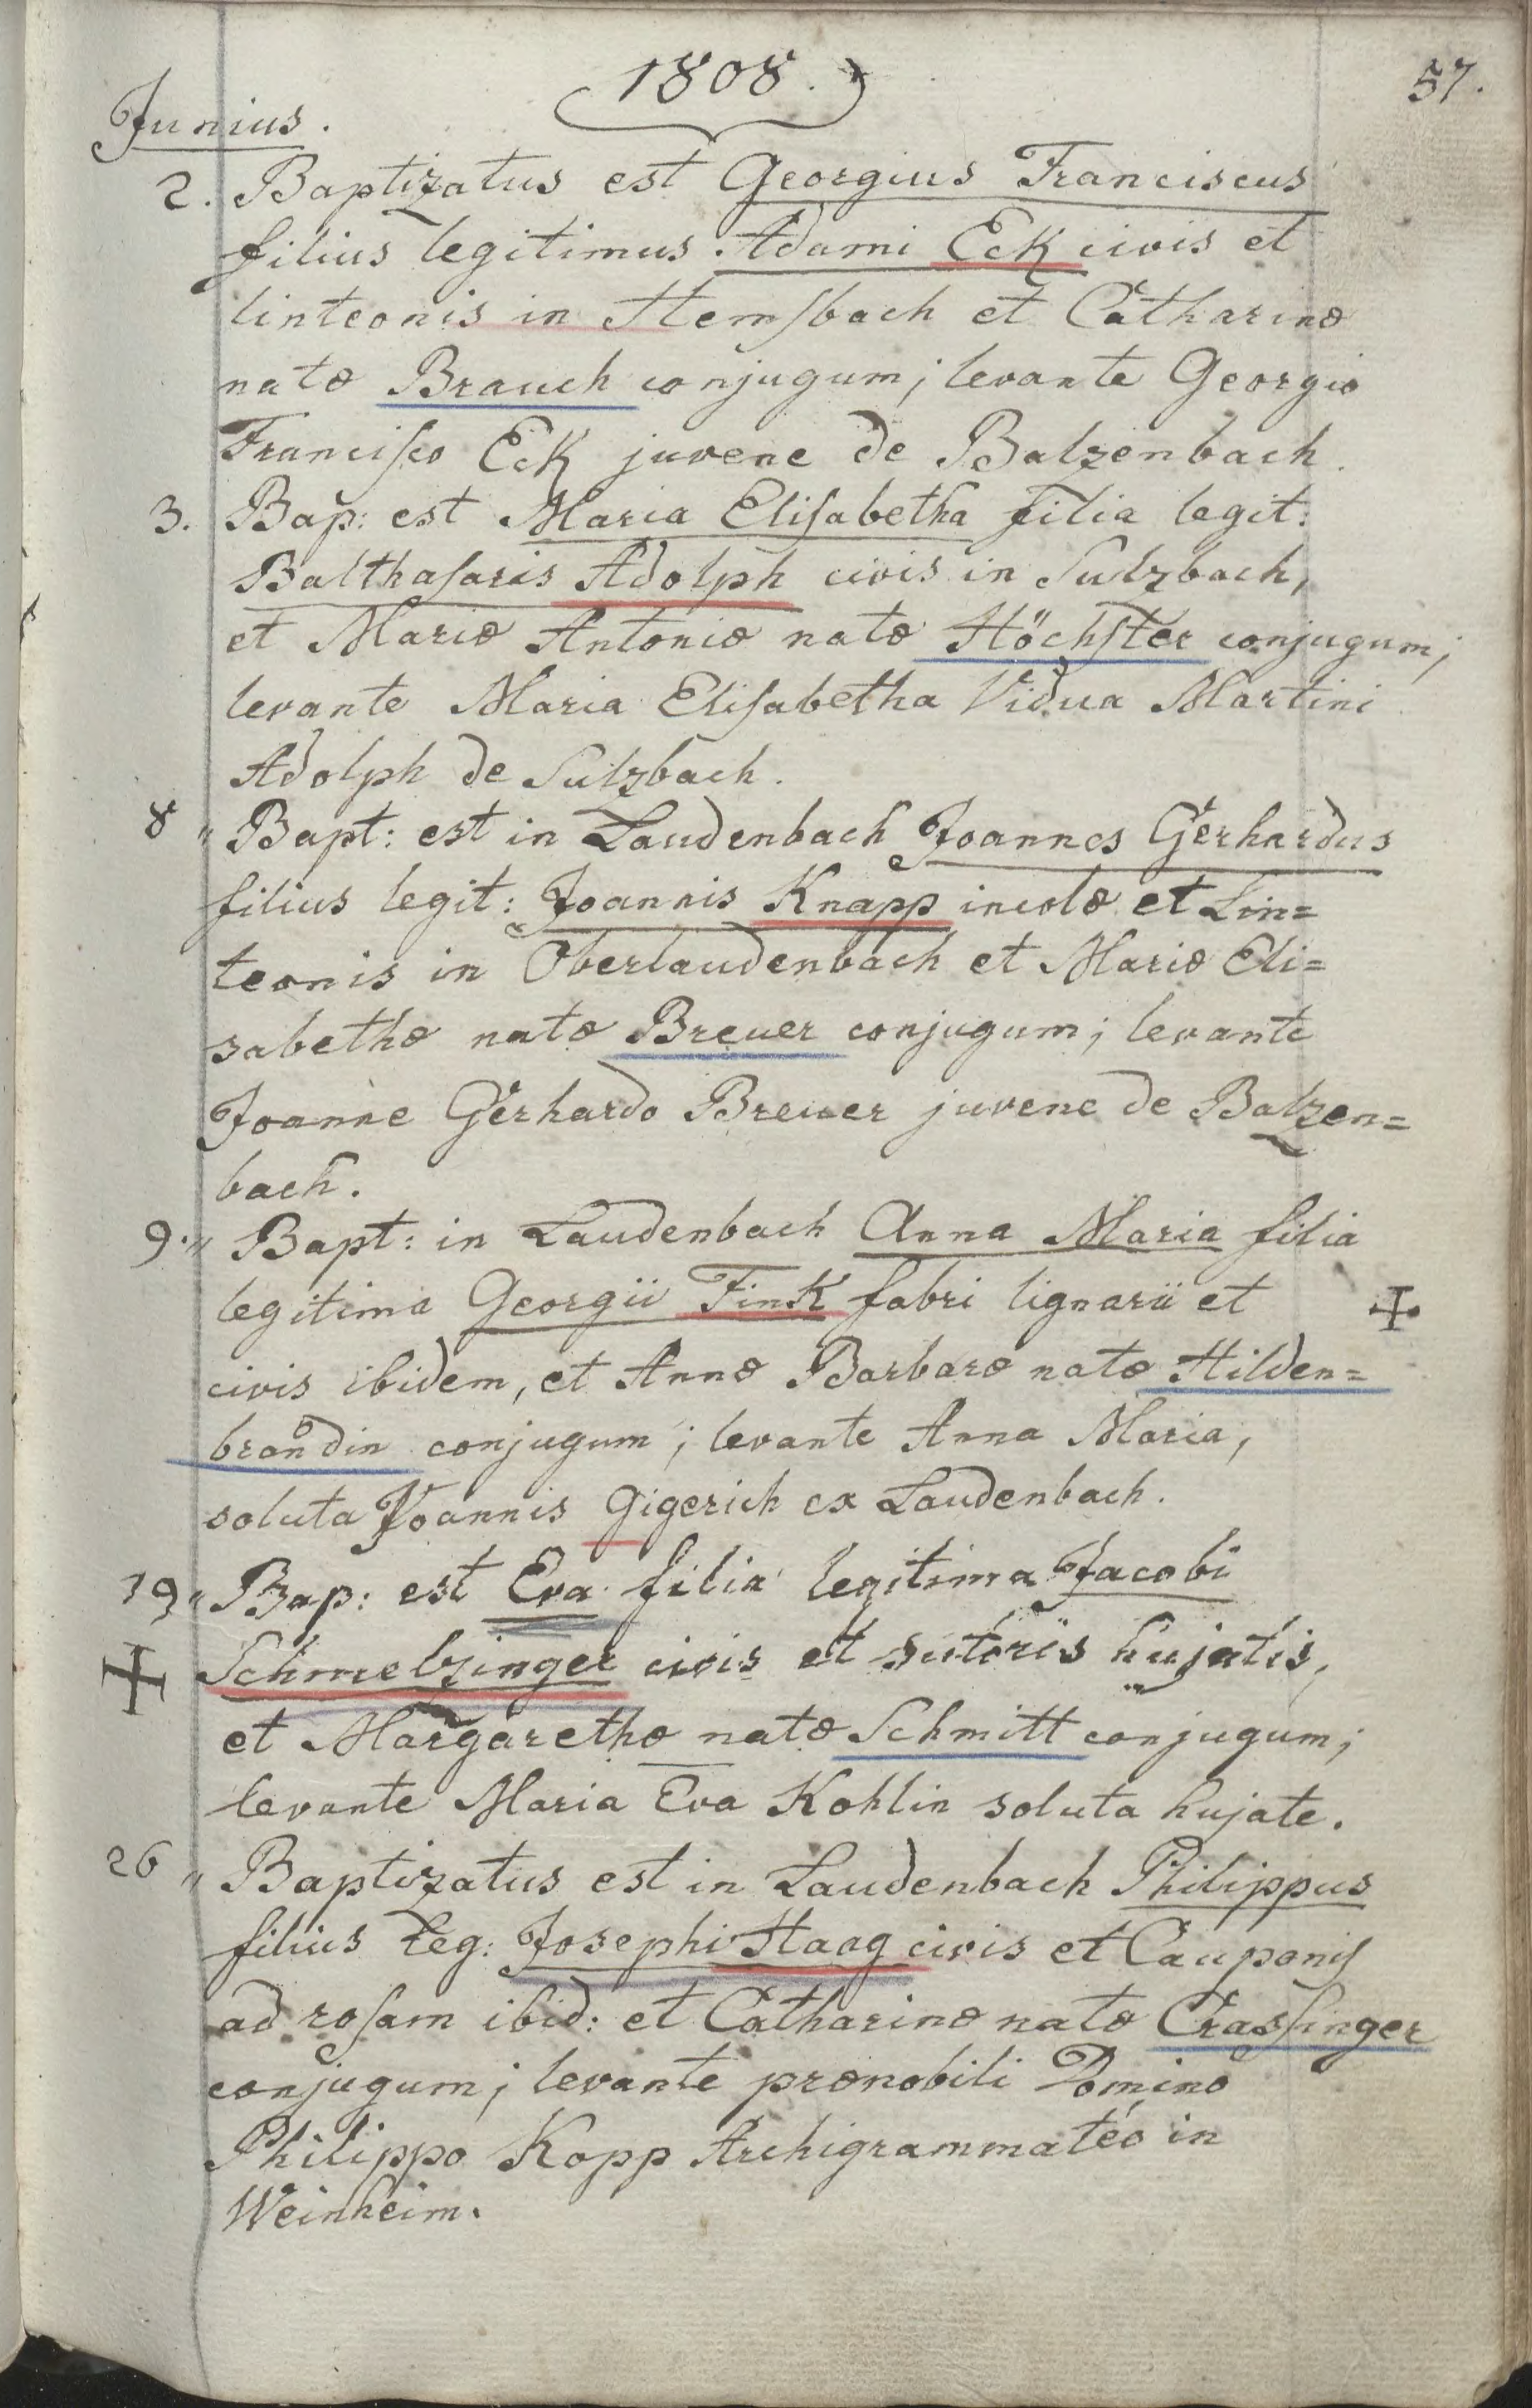 1808.
57.
Junius.
2. Baptizatus est Georgius Franciscus
filius legitimus Adami Eck civis et
linteonis in Hemsbach et Catharinæ
natæ Brauch conjugum; levante Georgio
Francisco Eck juvene de Balzenbach.
3. Bap: est Maria Elisabetha filia legit:
Balthasaris Adolph civis in Sulzbach,
et Mariæ Antoniæ natæ Höchster conjugum;
levante Maria Elisabetha Vidua Martini
Adolph de Sulzbach.
8 " Bapt: est in Laudenbach Joannes Gerhardus
filius legit: Joannis Knapp incolæ et Lin=
teonis in Oberlaudenbach et Mariæ Eli=
sabethæ natæ Breuer conjugum; levante
Joanne Gerhardo Breuer juvene de Balzen=
bach.
9. " Bapt: in Laudenbach Anna Maria filia
legitima Georgii Fink fabri lignarii et
civis ibidem, et Annæ Barbaræ natæ Hilden=
brandin conjugum; levante Anna Maria,
soluta Joannis Gigerich ex Laudenbach.
19 " Bap: est Eva filia legitima Jacobi
Schmelzinger civis et sutoris hujatis,
et Margarethæ natæ Schmitt conjugum;
levante Maria Eva Kohlin soluta hujate.
26 " Baptizatus est in Laudenbach Philippus
filius leg: Josephi Haag civis et Cauponis
ad rosam ibid: et Catharinæ natæ Crassinger
conjugum; levante prænobili Domino
Philippo Kopp Archigrammatéo in
Weinheim.